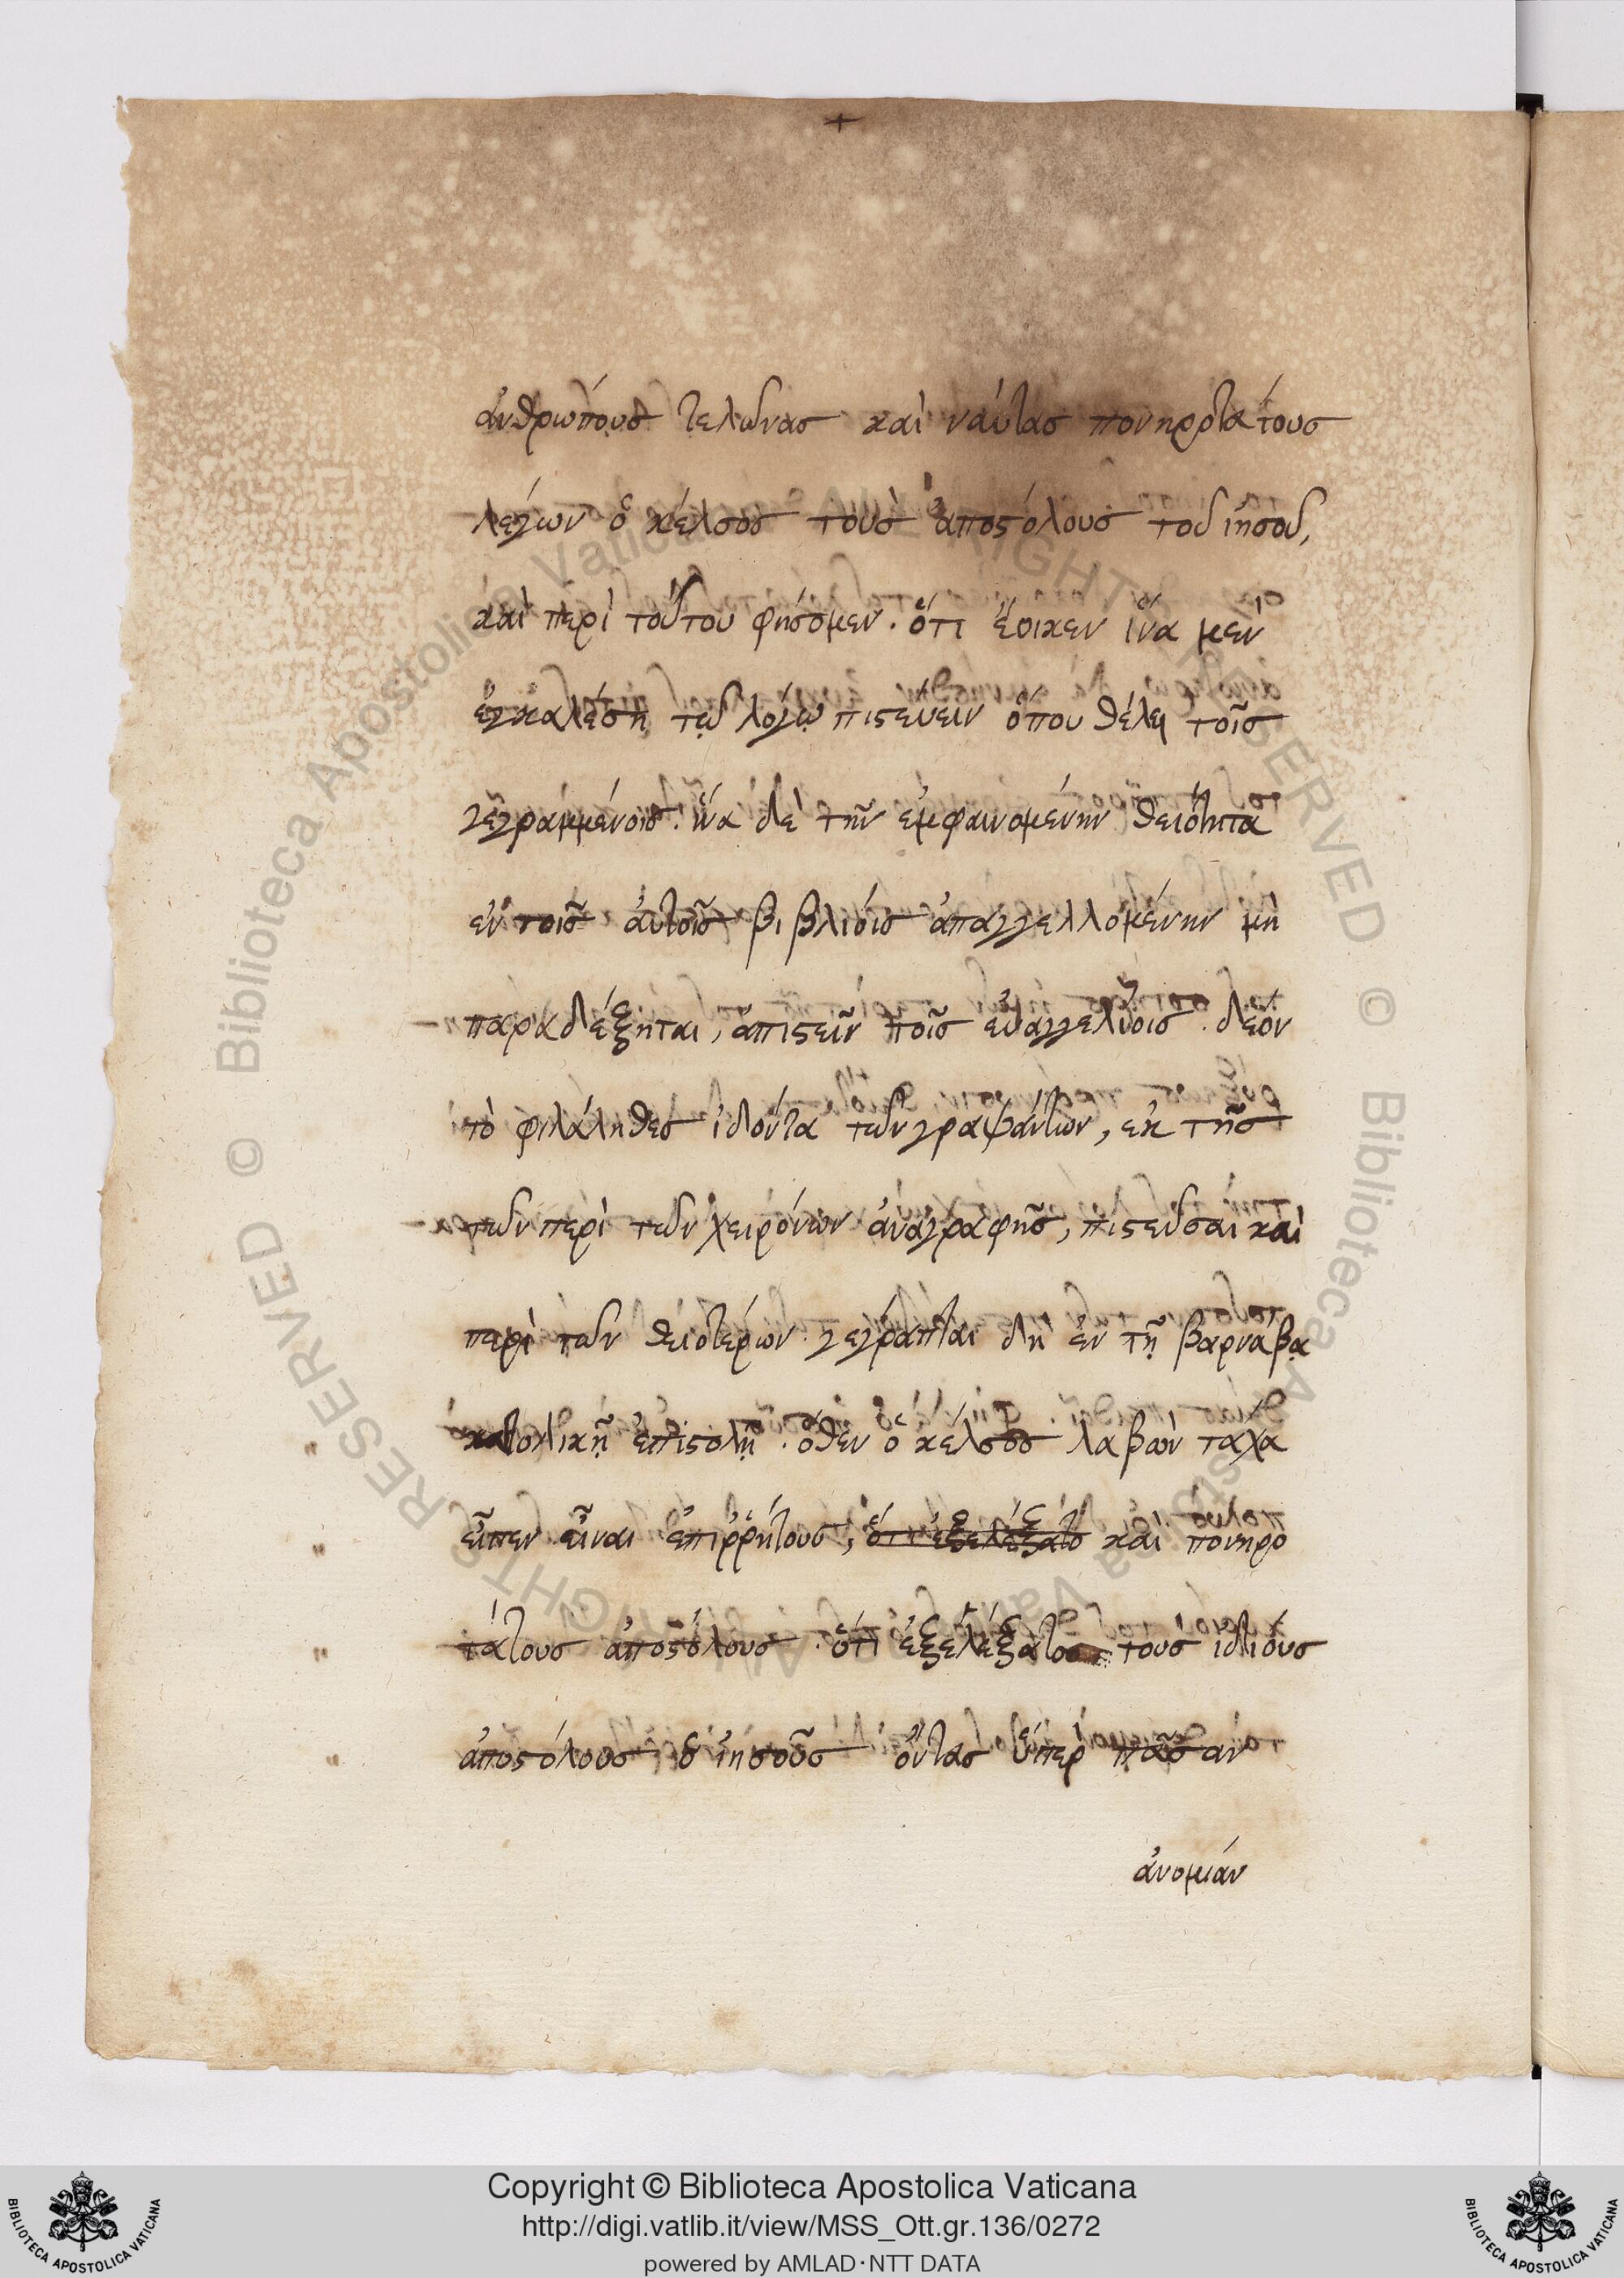 +
ἀνθρώπους τελώνας καὶ ναύτας πονηροτάτους
λέγων ὁ κέλσος τοὺς ἀποστόλους τοῦ ἰησοῦ,
καὶ περὶ τούτου φήσομεν. ὅτι ἔοικεν ἵνα μὲν
ἐγκαλέσῃ τῷ λόγῳ πιστεύειν ὅπου θέλει τοῖς
γεγραμμένοις. ἵνα δὲ τὴν ἐμφαινομένην θειότητα
ἐν τοῖς αὐτοῖς βιβλίοις ἀπαγγελλομένην μὴ
παραδέξηται, ἀπιστεῖν τοῖς εὐαγγελίοις. δέον
τὸ φιλάληθες ἰδόντα τῶν γραψάντων, ἐκ τῆς
τῶν περὶ τῶν χειρόνων ἀναγραφῆς, πιστεῦσαι καὶ
περὶ τῶν θειοτέρων. γέγραπται δὴ ἐν τῇ βαρνάβα
καθολικῇ ἐπιστολῇ. ὅθεν ὁ κέλσος λαβὼν τάχα
εἶπεν εἶναι ἐπιρρήτους, ὅτι ἐξελέξατο καὶ πονηρο
τάτους ἀποστόλους. ὅτι ἐξελέξατο τοὺς ἰδίους
ἀποστόλους ὁ ἰησοῦς ὄντας ὑπὲρ πᾶσαν
ἀνομίαν
© Biblioteca Apostolica Vaticana ALL RIGHTS RESERVED © Biblioteca Apostolica Vaticana ALL RIGHTS RESERVED
Copyright © Biblioteca Apostolica Vaticana
http://digi.vatlib.it/view/MSS_Ott.gr.136/0272
powered by AMLAD・NTT DATA
BIBLIOTECA APOSTOLICA VATICANA
BIBLIOTECA APOSTOLICA VATICANA